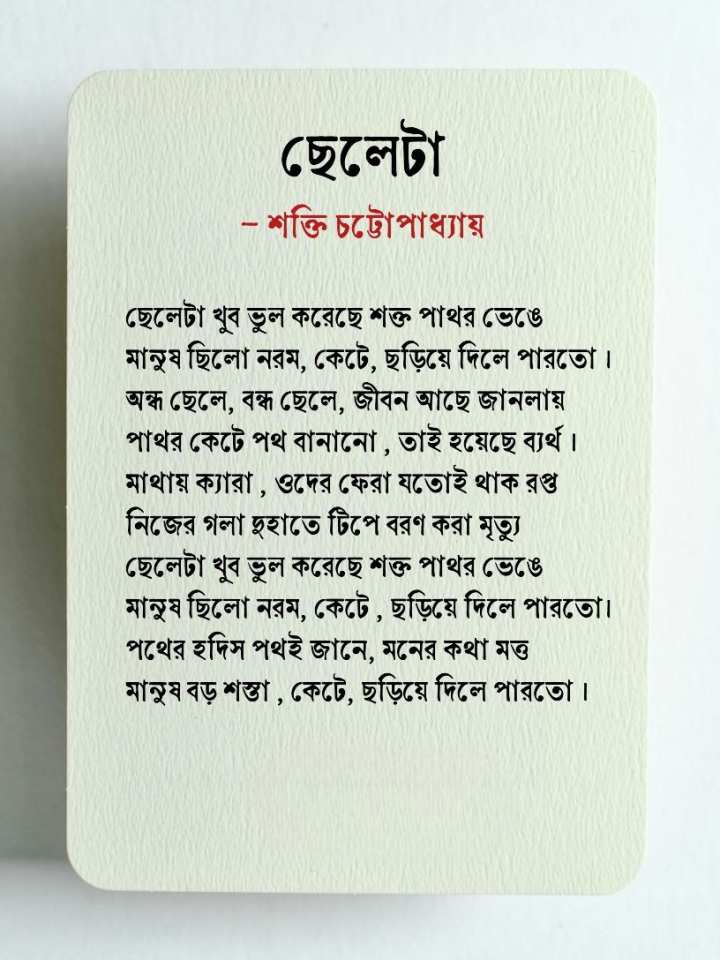 ছেলেটা
– শক্তি চট্টোপাধ্যায়
ছেলেটা খুব ভুল করেছে শক্ত পাথর ভেঙে
মানুষ ছিলো নরম, কেটে, ছড়িয়ে দিলে পারতো ।
অন্ধ ছেলে, বন্ধ ছেলে, জীবন আছে জানলায়
পাথর কেটে পথ বানানো , তাই হয়েছে ব্যর্থ ।
মাথায় ক্যারা , ওদের ফেরা যতোই থাক রপ্ত
নিজের গলা দুহাতে টিপে বরণ করা মৃত্যু
ছেলেটা খুব ভুল করেছে শক্ত পাথর ভেঙে
মানুষ ছিলো নরম, কেটে , ছড়িয়ে দিলে পারতো।
পথের হদিস পথই জানে, মনের কথা মত্ত
মানুষ বড় শস্তা , কেটে, ছড়িয়ে দিলে পারতো ।